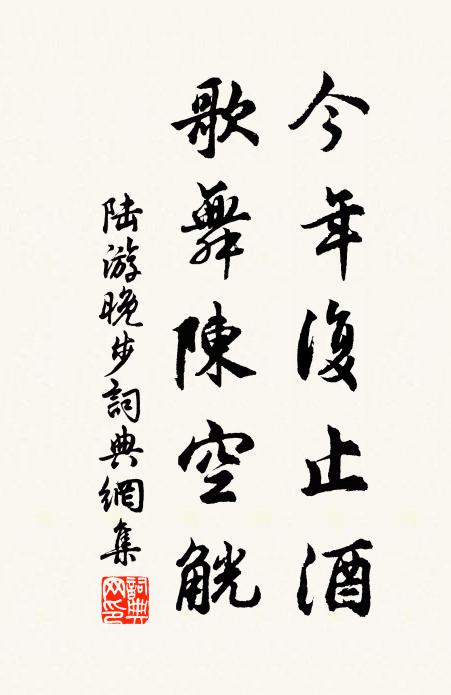 今年復止酒
歌舞陳空觥
陆游晚步詞典網集
詞典
网印